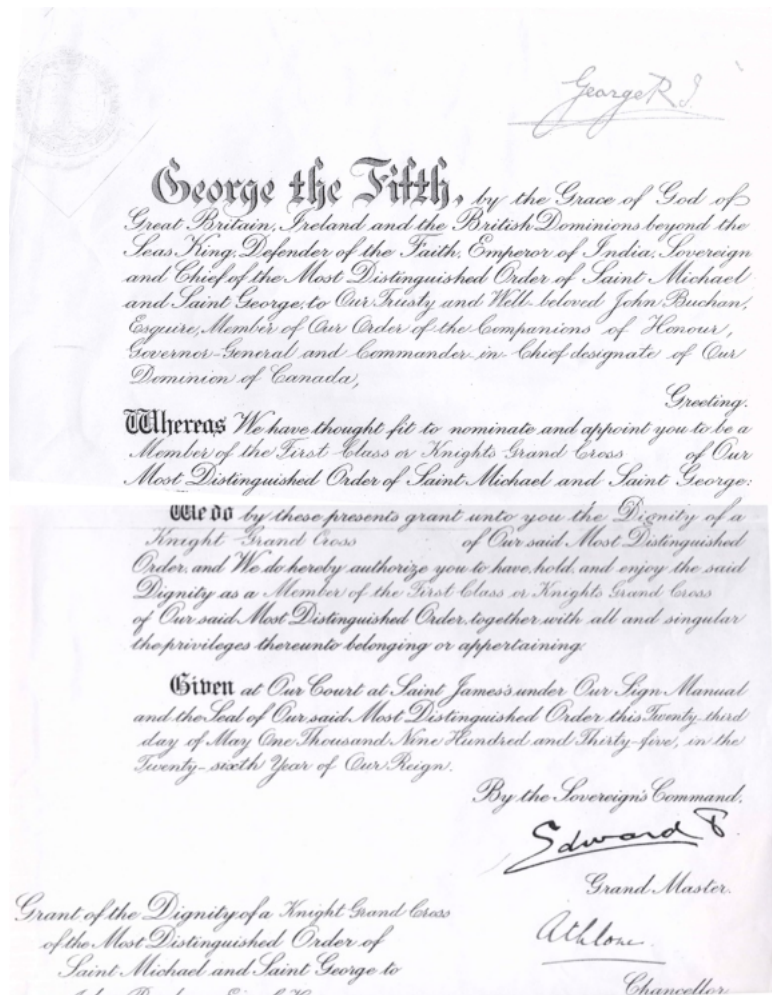 George R I
George the Fifth, by the Grace of God of
Great Britain, Ireland and the British Dominions beyond the
Seas King, Defender of the Faith, Emperor of India, Sovereign
and Chief of the Most Distinguished Order of Saint Michael
and Saint George, to Our Trusty and Well-beloved John Buchan,
Esquire, Member of Our Order of the Companions of Honour,
Governor-General and Commander-in-Chief designate of Our
Dominion of Canada,
Greeting.
Whereas We have thought fit to nominate and appoint you to be a
Member of the First Class or Knights Grand Cross of Our
Most Distinguished Order of Saint Michael and Saint George:
We do by these presents grant unto you the Dignity of a
Knight Grand Cross of Our said Most Distinguished
Order, and We do hereby authorize you to have, hold, and enjoy the said
Dignity as a Member of the First Class or Knights Grand Cross
of Our said Most Distinguished Order, together with all and singular
the privileges thereunto belonging or appertaining.
Given at Our Court at Saint James's under Our Sign Manual
and the Seal of Our said Most Distinguished Order this Twenty-third
day of May One Thousand Nine Hundred and Thirty-five, in the
Twenty-sixth Year of Our Reign.
By the Sovereign's Command,
Edward P
Grand Master.
Grant of the Dignity of a Knight Grand Cross
of the Most Distinguished Order of
Saint Michael and Saint George to
Athlone
Chancellor